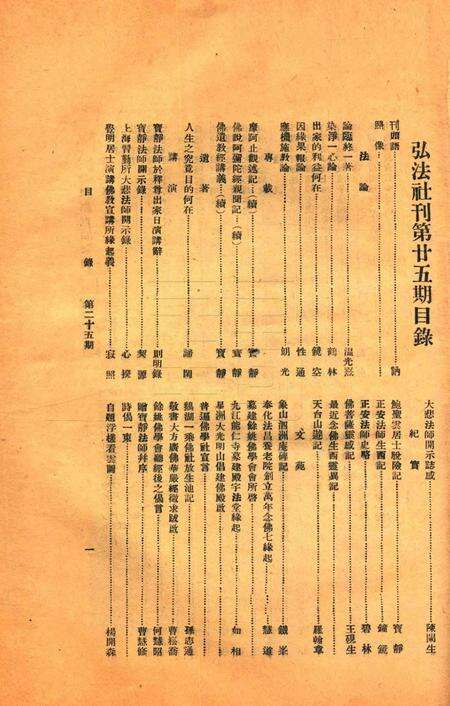 弘法社刊第廿五期目錄
刊頭語……訥
照像
法論
論臨終一著……溫光熹
染淨一心論……鶴林
出家的利益何在……鏡空
因緣果報論……性通
應機施教論……朗光
專載
摩訶止觀述記（續）……寶靜
佛說阿彌陀經親聞記（續）……寶靜
佛遺教經講義（續）……寶靜
遺著
人生之究竟目的何在……諦閑
講演
寶靜法師於釋尊出家日演講辭……則明錄
寶靜法師開示錄……契源
上海習勤所大悲法師開示錄……心撰
發明居士演講佛教宣講所緣起義……寂照
目錄 第二十五期
大悲法師開示誌感……陳閑生
紀實
鮑聖雲居士脫險記……寶靜
正安法師生西記……鐘鏡
正安法師史略……碧林
佛菩薩靈感記……王硯生
最近念佛生西靈異記
天台山遊記……羅翰章
文苑
象山泗洲庵碑記……鐵峯
奉化法昌養老院創立萬年念佛七緣起……慧道
募建餘姚佛學會會所啓
九江能仁寺募建殿宇法堂緣起……如相
星洲大光明山倡建佛殿啟
普通佛學社宣言
鵝湖一乘佛社放生池記……孫志通
敬書大方廣佛華嚴經徵求跋啟……曹崧喬
餘姚佛學會聽經後之偈言……何慧昭
贈寶靜法師并序……曹慧修
詩偈一束
自題浮槎看雲圖……楊開森
一